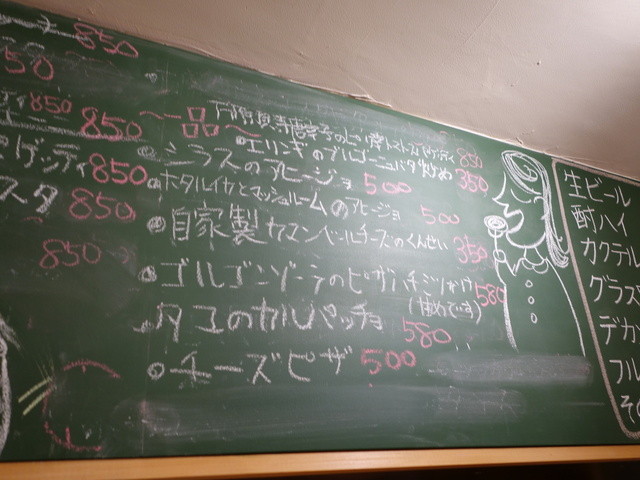 850
50
850
850
ゲッティ 850
スタ 850
850
〜一品〜
850
エリンギのブルゴーニュバタ炒め 350
シラスのアヒージョ 500
ホタルイカとマッシュルームのアヒージョ 500
自家製カマンベールチーズのくんせい 350
ゴルゴンゾーラのピザハチミツがけ 580
(甘めです)
タコのカルパッチョ 580
チーズピザ 500
生ビール
酎ハイ
カクテル
グラス
デカ
フル
その